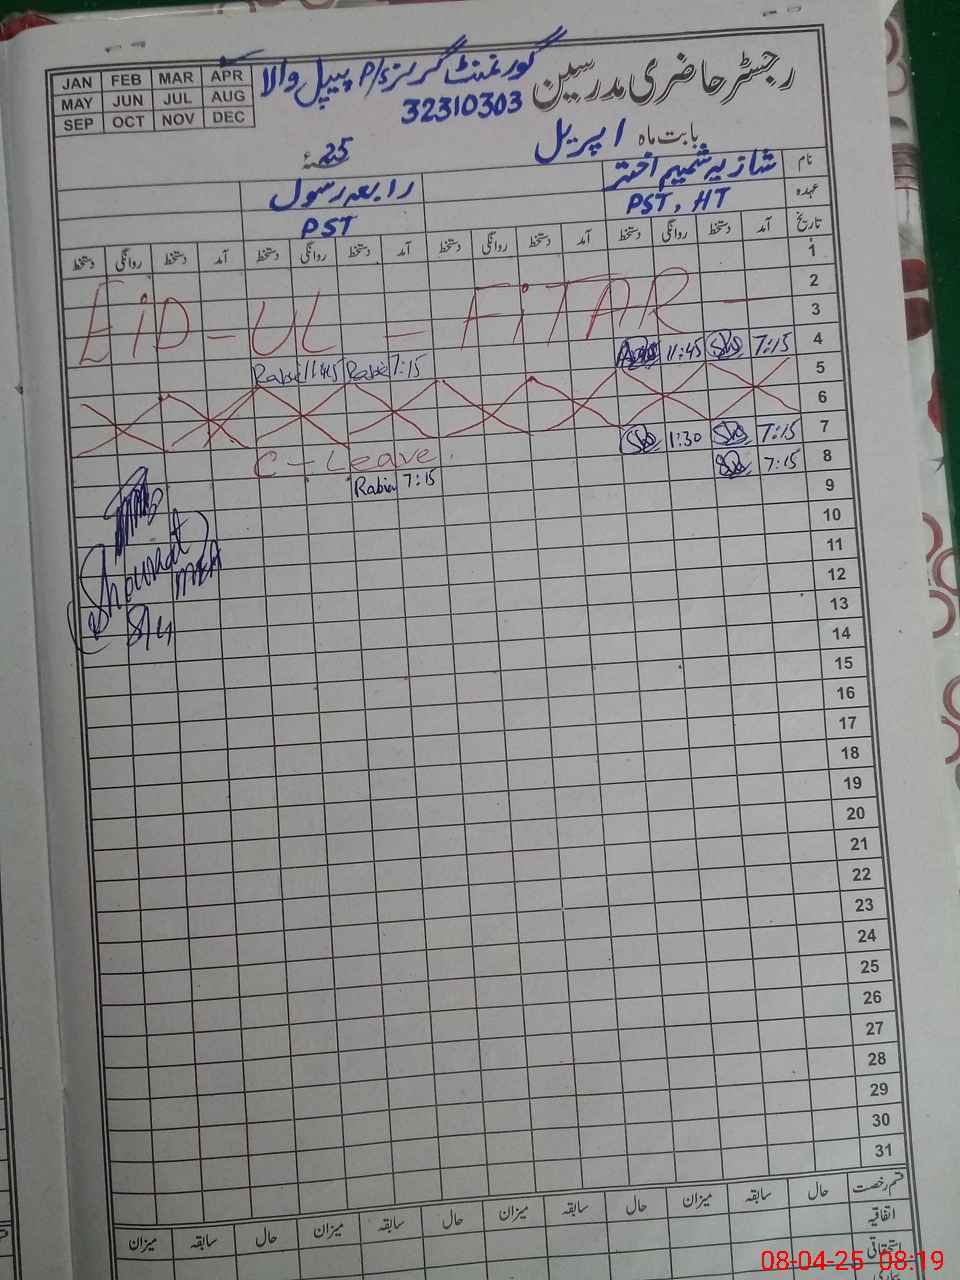 JAN FEB MAR APR
MAY JUN JUL AUG
SEP OCT NOV DEC
رجسٹر حاضری مدرسین گورنمنٹ گرلز P/S پیپل والا
32310303
بابت ماہ اپریل 25
نام شازیہ شمیم اختر رابعہ رسول
عہدہ PST, HT PST
تاریخ آمد دستخط روانگی دستخط آمد دستخط روانگی دستخط آمد دستخط روانگی دستخط آمد دستخط روانگی دستخط
1
2
EID - UL - FITAR -
3
4
7:15 11:45 Rabia 11:45 Rabia 7:15
5
6
7
7:15 1:30 C - Leave.
8
7:15 Rabia 7:15
9
10
11
12
13
14
15
16
17
18
19
20
21
22
23
24
25
26
27
28
29
30
31
Shoukat
MEA
8/4
قسم رخصت حال سابقہ میزان حال سابقہ میزان حال سابقہ میزان حال سابقہ میزان
اتفاقیہ
استحقاقی
08-04-25 08:19